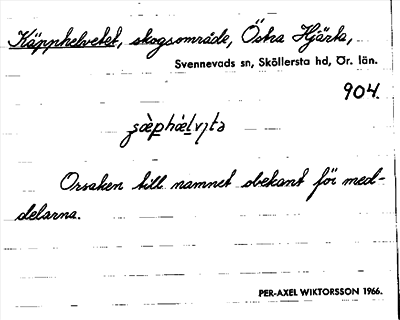 Käpphelvetet, skogsområde, Östra Hjärta,
Svennevads sn, Sköllersta hd, Ör. län.
904.
Orsaken till namnet obekant för med-
delarna.
PER-AXEL WIKTORSSON 1966.